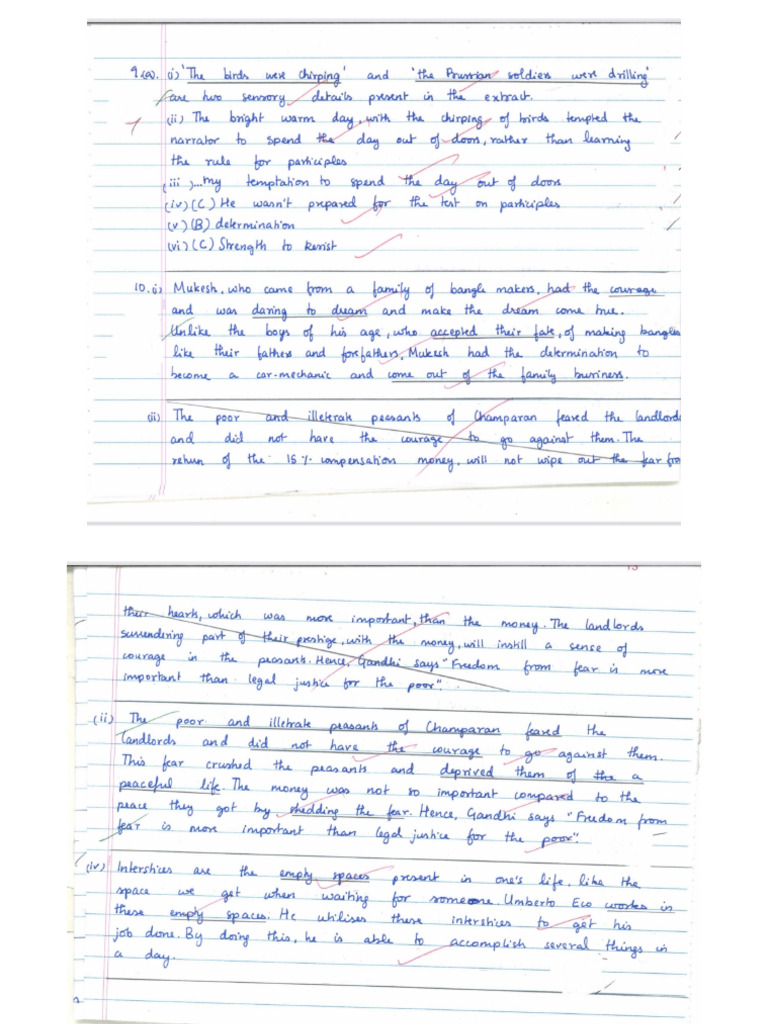 9.(a). (i) 'The birds were chirping' and 'the Prussian soldiers were drilling'
are two sensory details present in the extract.
(ii) The bright warm day, with the chirping of birds tempted the
narrator to spend the day out of doors, rather than learning
the rule for participles
(iii) ...my temptation to spend the day out of doors
(iv) (C) He wasn't prepared for the test on participles
(v) (B) determination
(vi) (C) Strength to resist
10. (i) Mukesh, who came from a family of bangle makers, had the courage
and was daring to dream and make the dream come true.
Unlike the boys of his age, who accepted their fate, of making bangles
like their fathers and forefathers, Mukesh had the determination to
become a car-mechanic and come out of the family business.
(ii) The poor and illetrate peasants of Champaran feared the landlords
and did not have the courage to go against them. The
return of the 15% compensation money, will not wipe out the fear from
their hearts, which was more important, than the money. The landlords
surrendering part of their prestige, with the money, will instill a sense of
courage in the peasants. Hence, Gandhi says "Freedom from fear is more
important than legal justice for the poor".
(ii) The poor and illetrate peasants of Champaran feared the
landlords and did not have the courage to go against them.
This fear crushed the peasants and deprived them of the a
peaceful life. The money was not so important compared to the
peace they got by shedding the fear. Hence, Gandhi says "Freedom from
fear is more important than legal justice for the poor".
(iv) Intershices are the empty spaces present in one's life, like the
space we get when waiting for someone. Umberto Eco works in
these empty spaces. He utilises these intershices to get his
job done. By doing this, he is able to accomplish several things in
a day.